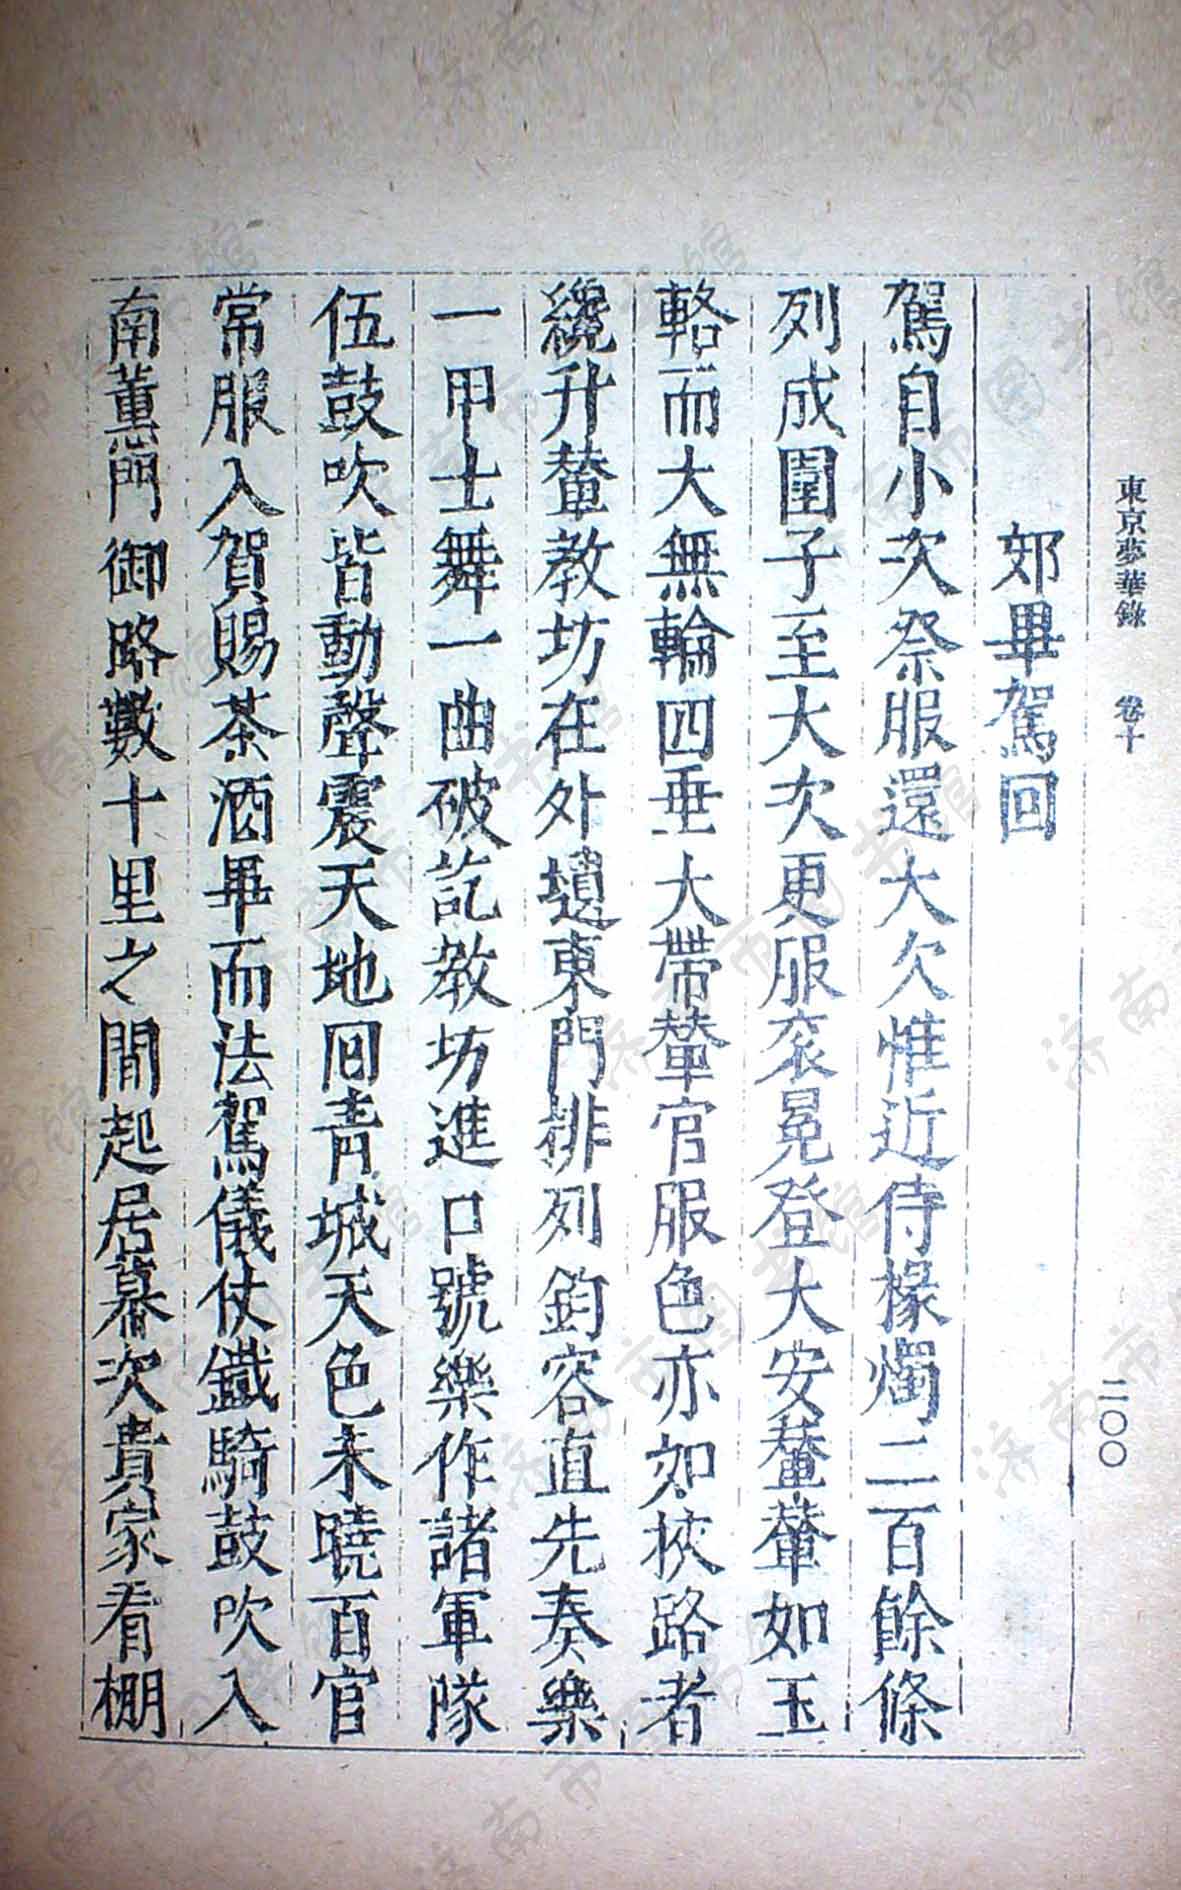 東京夢華錄 卷十 二〇〇
郊畢駕回
駕自小次祭服還大次惟近侍椽燭二百餘條
列成圍子至大次更服衮冕登大安輦輦如玉
輅而大無輪四垂大帶輦官服色亦如挾路者
纔升輦教坊在外壝東門排列鈞容直先奏樂
一甲士舞一曲破訖教坊進口號樂作諸軍隊
伍鼓吹皆動聲震天地囘青城天色未曉百官
常服入賀賜茶酒畢而法駕儀仗鐵騎鼓吹入
南薫門御路數十里之間起居幕次貴家看棚
济南市图书馆